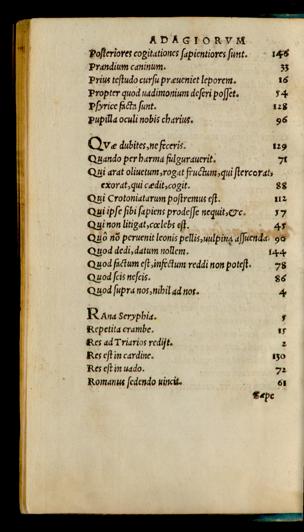 ADAGIORVM
Posteriores cogitationes sapientiores sunt. 146
Prandium caninum. 33
Prius testudo cursu præueniet leporem. 16
Propter quod uadimonium deseri posset. 54
Psyrice facta sunt. 128
Pupilla oculi nobis charius. 96
QVæ dubites, ne feceris. 129
Quando per harma fulgurauerit. 71
Qui arat oliuetum, rogat fructum, qui stercorat,
exorat, qui cædit, cogit. 88
Qui Crotoniatarum postremus est. 112
Qui ipse sibi sapiens prodesse nequit, &c. 57
Qui non litigat, cœlebs est. 45
Quò nō peruenit leonis pellis, uulpina assuenda. 90
Quod dedi, datum nollem. 144
Quod factum est, infectum reddi non potest. 78
Quod scis nescis. 86
Quod supra nos, nihil ad nos. 4
RAna Seryphia. 5
Repetita crambe. 15
Res ad Triarios redijt. 2
Res est in cardine. 130
Res est in uado. 72
Romanus sedendo uincit. 61
Sæpe